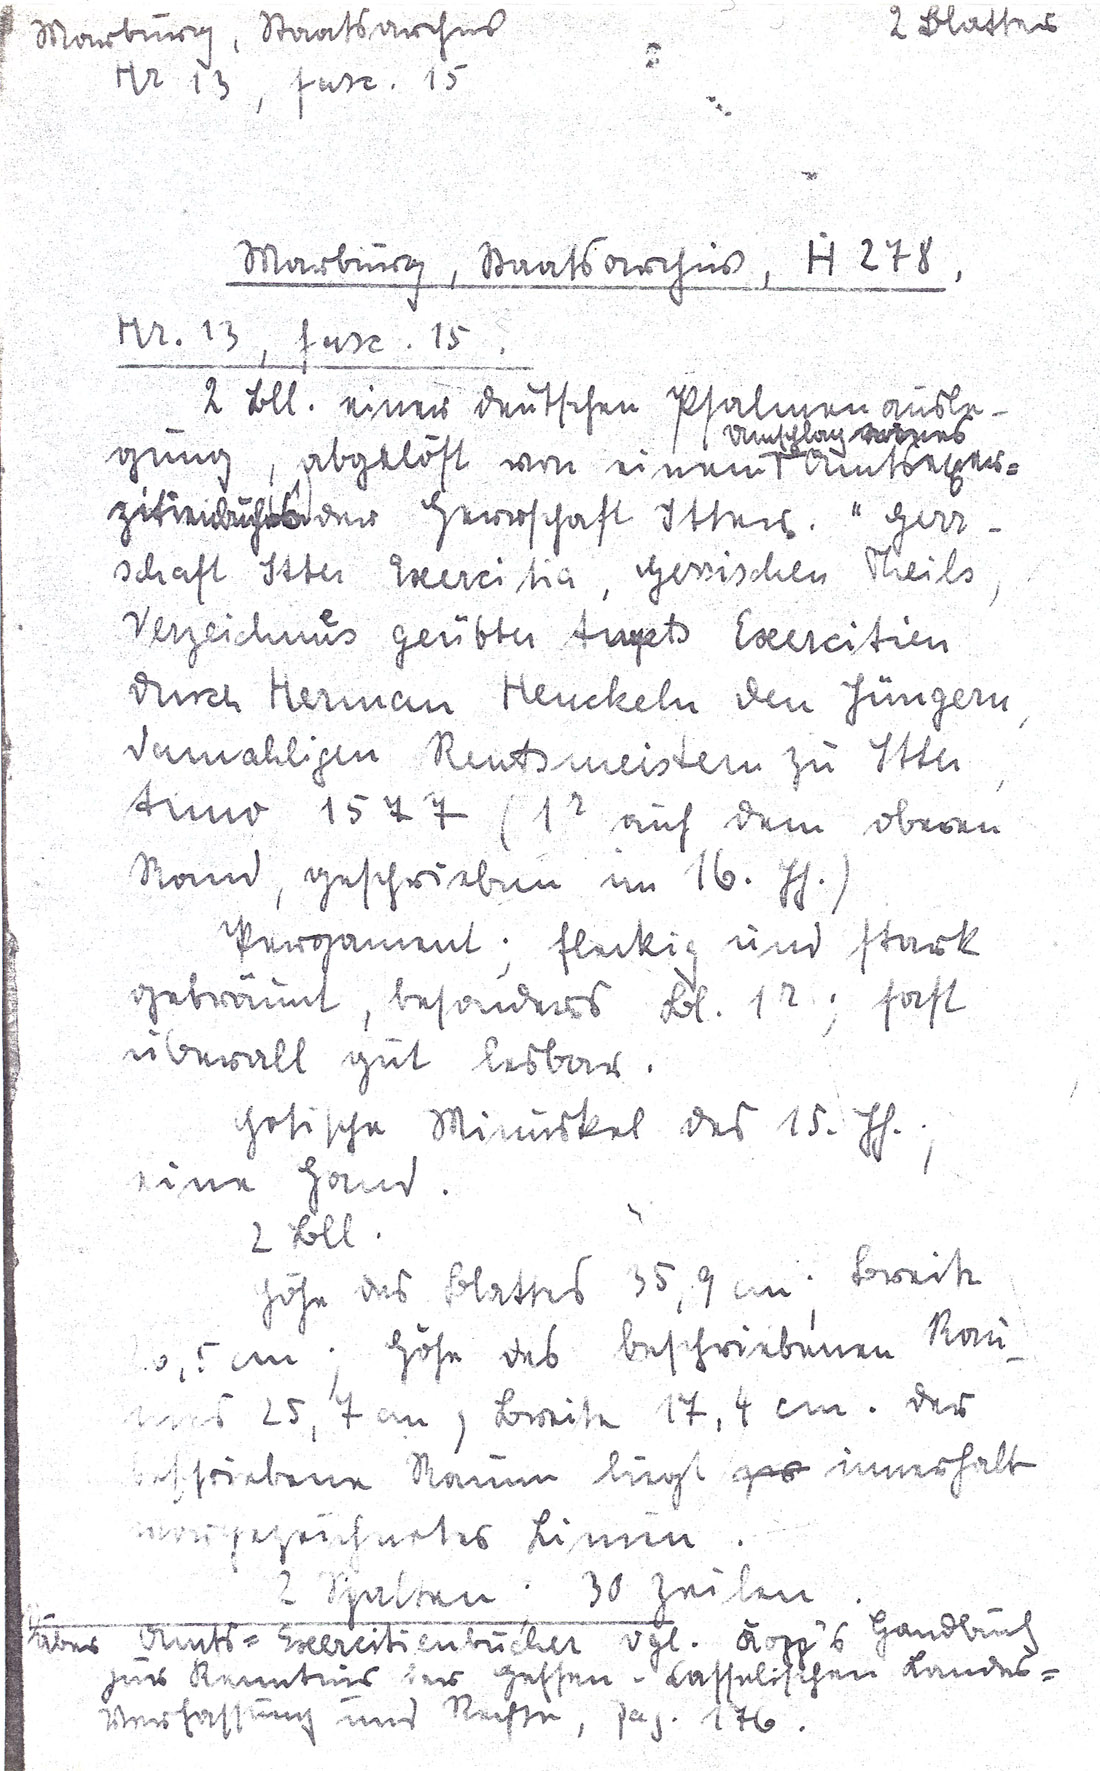 Marburg, Staatsarchiv
2 Blätter
Nr 13, fasc. 15
Marburg, Staatsarchiv, H 278,
Nr. 13, fasc. 15.
2 Bll. einer deutschen Psalmenausle-
Umschlag eines
gung, abgelöst von einem Amtsexer-
zitienbuches¹) der Herrschaft Itter. "Herr-
schaft Itter Exercitia, Hessischen Theils,
Verzeichnus geübter Ampts Exercitien
durch Herman Henckeln den Jüngern,
damahligen Rentsmeistern zu Itter,
Anno 1577 (1r auf dem oberen
Rand, geschrieben im 16. Jh.)
Pergament; fleckig und stark
gebräunt, besonders Bl. 1r; fast
überall gut lesbar.
Gotische Minuskel des 15. Jh.;
eine Hand.
2 Bll.
Höhe des Blattes 35,9 cm; Breite
,5 cm; Höhe des beschriebenen Rau-
mes 25,7 cm, Breite 17,4 cm. Der
beschriebene Raum liegt innerhalb
vorgezeichneter Linien.
2 Spalten; 30 Zeilen.
über Amts=Exercitienbücher vgl. Kopp's Handbuch
zur Kenntnis der Hessen-Casselischen Landes=
Verfassung und Rechte, pag. 176.